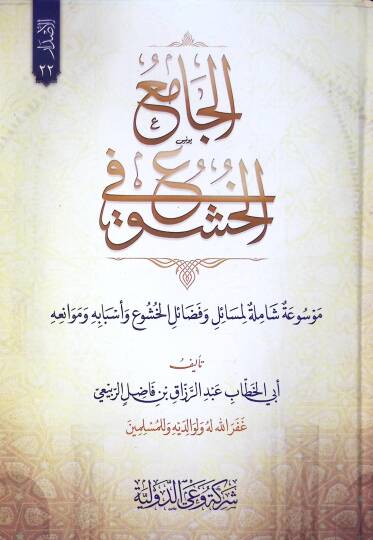 الإصدار
٢٢
الجامع
في
الخشوع
مَوْسُوعَةٌ شَامِلَةٌ لِمَسَائِلِ وَفَضَائِلِ الخُشُوعِ وَأَسْبَابِهِ وَمَوَانِعِهِ
تأليف
أبي الخطّاب عبد الرزاق بن فاضل الربيعي
غَفَرَ اللهُ لَهُ وَلِوَالِدَيْهِ وَلِلْمُسْلِمِينَ
شركة وعي الدولية